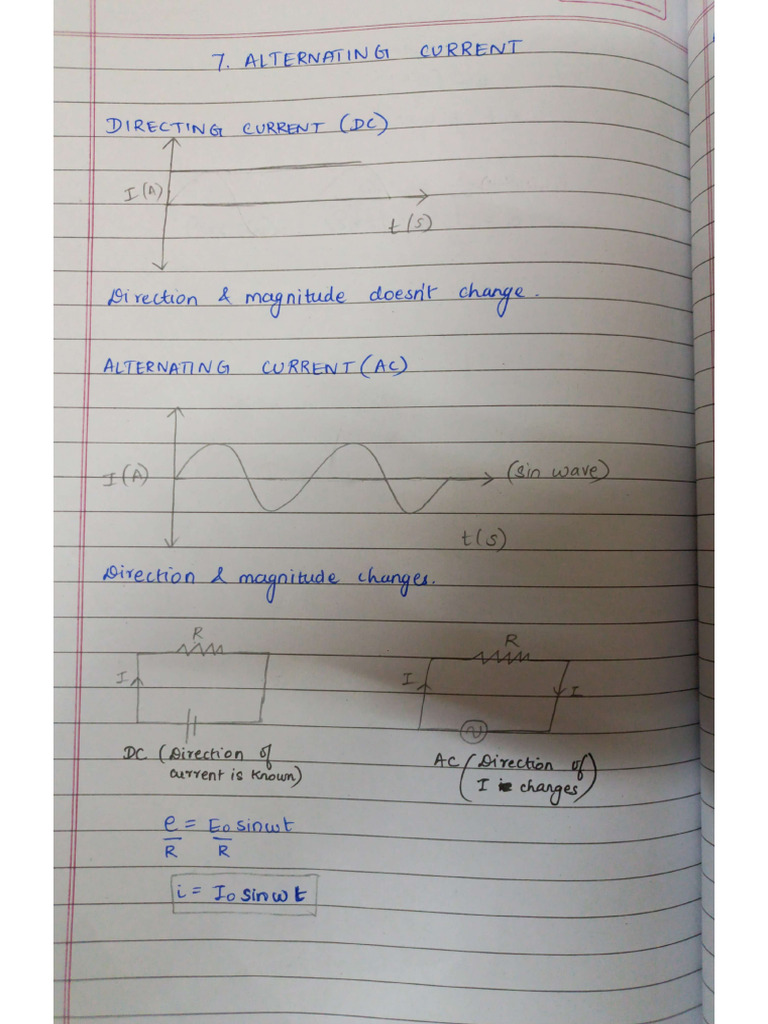 7. ALTERNATING CURRENT
DIRECTING CURRENT (DC)
I (A)
t(s)
Direction & magnitude doesn't change.
ALTERNATING CURRENT (AC)
I (A)
(sin wave)
t(s)
Direction & magnitude changes.
R
I
DC (Direction of
current is known)
R
I
I
AC (Direction of
I changes)
e = E₀ sinωt
R R
i = I₀ sinωt